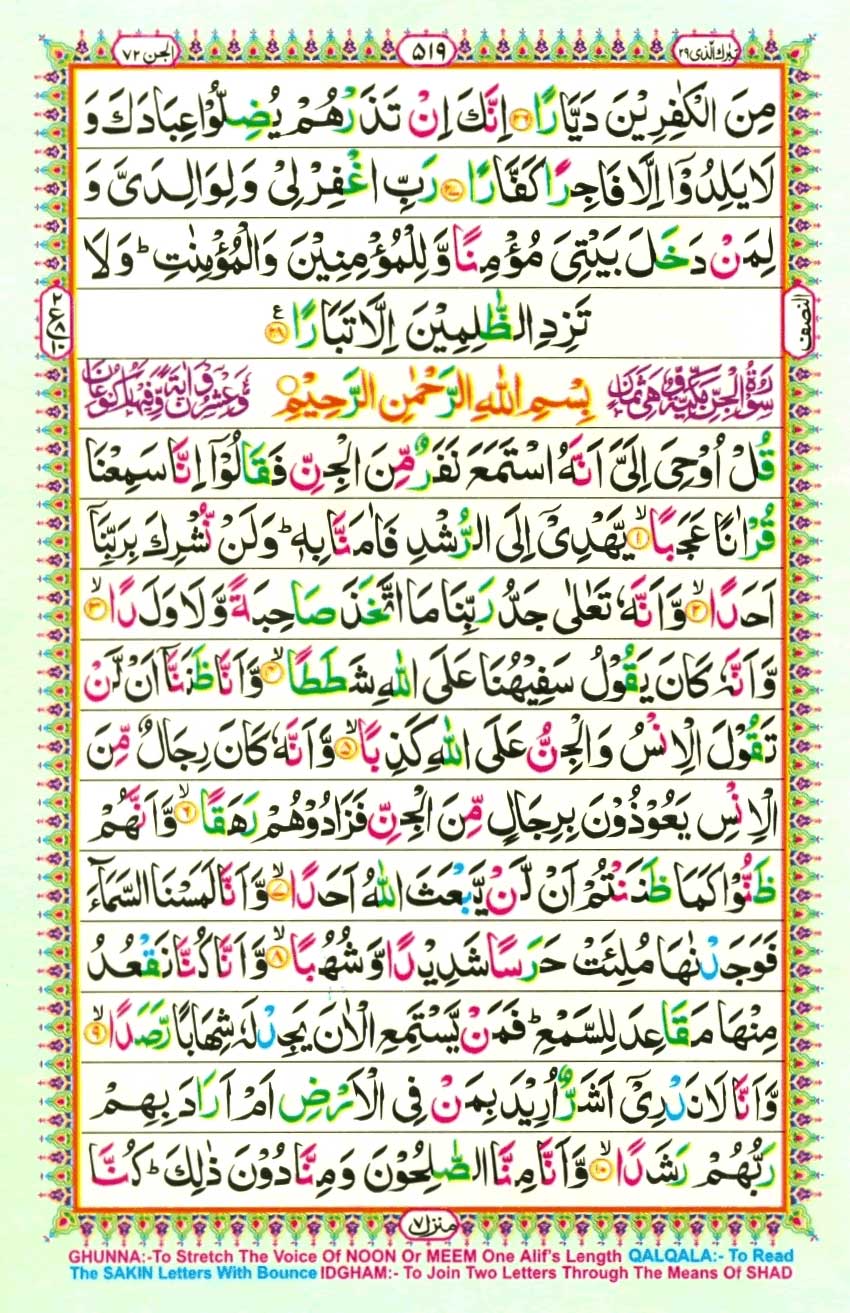 تبٰرك الّذی ٢٩
٥١٩
الجن ٧٢
مِنَ الْكٰفِرِیْنَ دَیَّارًا ٢٦ اِنَّكَ اِنْ تَذَرْهُمْ یُضِلُّوْا عِبَادَكَ وَ
لَا یَلِدُوْۤا اِلَّا فَاجِرًا كَفَّارًا ٢٧ رَبِّ اغْفِرْ لِیْ وَ لِوَالِدَیَّ وَ
لِمَنْ دَخَلَ بَیْتِیَ مُؤْمِنًا وَّ لِلْمُؤْمِنِیْنَ وَ الْمُؤْمِنٰتِ ؕ وَ لَا
تَزِدِ الظّٰلِمِیْنَ اِلَّا تَبَارًا ٢٨ ع
النصف
٢
ع ٨
١٠
سُوْرَةُ الْجِنِّ مَكِّیَّةٌ وَّ هِیَ ثَمَانٌ
بِسْمِ اللّٰهِ الرَّحْمٰنِ الرَّحِیْمِ
وَّ عِشْرُوْنَ اٰیَةً وَّ فِیْهَا رُكُوْعَانِ
قُلْ اُوْحِیَ اِلَیَّ اَنَّهُ اسْتَمَعَ نَفَرٌ مِّنَ الْجِنِّ فَقَالُوْۤا اِنَّا سَمِعْنَا
قُرْاٰنًا عَجَبًا ١ۙ یَّهْدِیْۤ اِلَی الرُّشْدِ فَاٰمَنَّا بِهٖ ؕ وَ لَنْ نُّشْرِكَ بِرَبِّنَاۤ
اَحَدًا ٢ۙ وَّ اَنَّهٗ تَعٰلٰی جَدُّ رَبِّنَا مَا اتَّخَذَ صَاحِبَةً وَّ لَا وَلَدًا ٣ۙ
وَّ اَنَّهٗ كَانَ یَقُوْلُ سَفِیْهُنَا عَلَی اللّٰهِ شَطَطًا ٤ۙ وَّ اَنَّا ظَنَنَّاۤ اَنْ لَّنْ
تَقُوْلَ الْاِنْسُ وَ الْجِنُّ عَلَی اللّٰهِ كَذِبًا ٥ۙ وَّ اَنَّهٗ كَانَ رِجَالٌ مِّنَ
الْاِنْسِ یَعُوْذُوْنَ بِرِجَالٍ مِّنَ الْجِنِّ فَزَادُوْهُمْ رَهَقًا ٦ۙ وَّ اَنَّهُمْ
ظَنُّوْا كَمَا ظَنَنْتُمْ اَنْ لَّنْ یَّبْعَثَ اللّٰهُ اَحَدًا ٧ۙ وَّ اَنَّا لَمَسْنَا السَّمَآءَ
فَوَجَدْنٰهَا مُلِئَتْ حَرَسًا شَدِیْدًا وَّ شُهُبًا ٨ۙ وَّ اَنَّا كُنَّا نَقْعُدُ
مِنْهَا مَقَاعِدَ لِلسَّمْعِ ؕ فَمَنْ یَّسْتَمِعِ الْاٰنَ یَجِدْ لَهٗ شِهَابًا رَّصَدًا ٩ۙ
وَّ اَنَّا لَا نَدْرِیْۤ اَشَرٌّ اُرِیْدَ بِمَنْ فِی الْاَرْضِ اَمْ اَرَادَ بِهِمْ
رَبُّهُمْ رَشَدًا ١٠ۙ وَّ اَنَّا مِنَّا الصّٰلِحُوْنَ وَ مِنَّا دُوْنَ ذٰلِكَ ؕ كُنَّا
منزل ٧
GHUNNA:-To Stretch The Voice Of NOON Or MEEM One Alif's Length QALQALA:- To Read
The SAKIN Letters With Bounce IDGHAM:- To Join Two Letters Through The Means Of SHAD